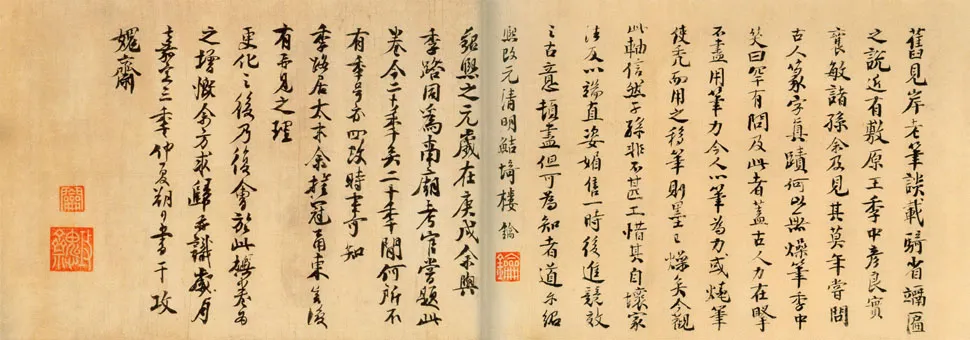 舊見岸老筆談載騎省竵匾
之說近有敷原王季中彥良實
襄敏諸孫余及見其莫年嘗問
古人篆字真蹟何以無燥筆季中
笑曰罕有問及此者蓋古人力在擘
不盡用筆力今人以筆為力或燒筆
使禿而用之移筆則墨已燥矣今觀
此軸信然子孫非不甚工惜其自壞家
法反以端直姿媚售一時後進競效
之古意頓盡但可為知者道尓紹
熙改元清明鮚埼樓鑰
鑰
紹熙之元歲在庚戌余與
季路同為南廟考官嘗題此
卷今二十年矣二十年間何所不
有年号亦四改時事可知
季路居太末余掛冠甬東豈復
有再見之理
更化之後乃復會於此撫卷為
之增慨余方求歸再識歲月
嘉定三年仲夏朔日書于攻
媿齋